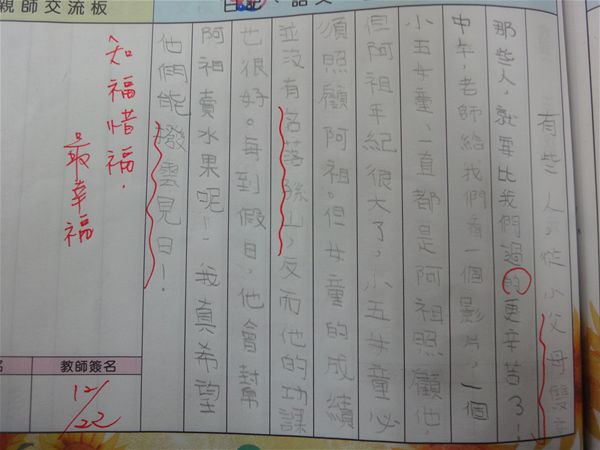 親師交流板
日記、語文
有些人，從小父母雙
那些人，就要比我們過的更辛苦了！
中午，老師給我們看一個影片，一個
小五女童、一直都是阿祖照顧他，
但阿祖年紀很大了，小五女童必
須照顧阿祖。但女童的成績
並沒有名落孫山，反而他的功課
也很好。每到假日，他會幫
阿祖賣水果呢！我真希望
他們能撥雲見日！
知福惜福，
最幸福
教師簽名
12/22
名